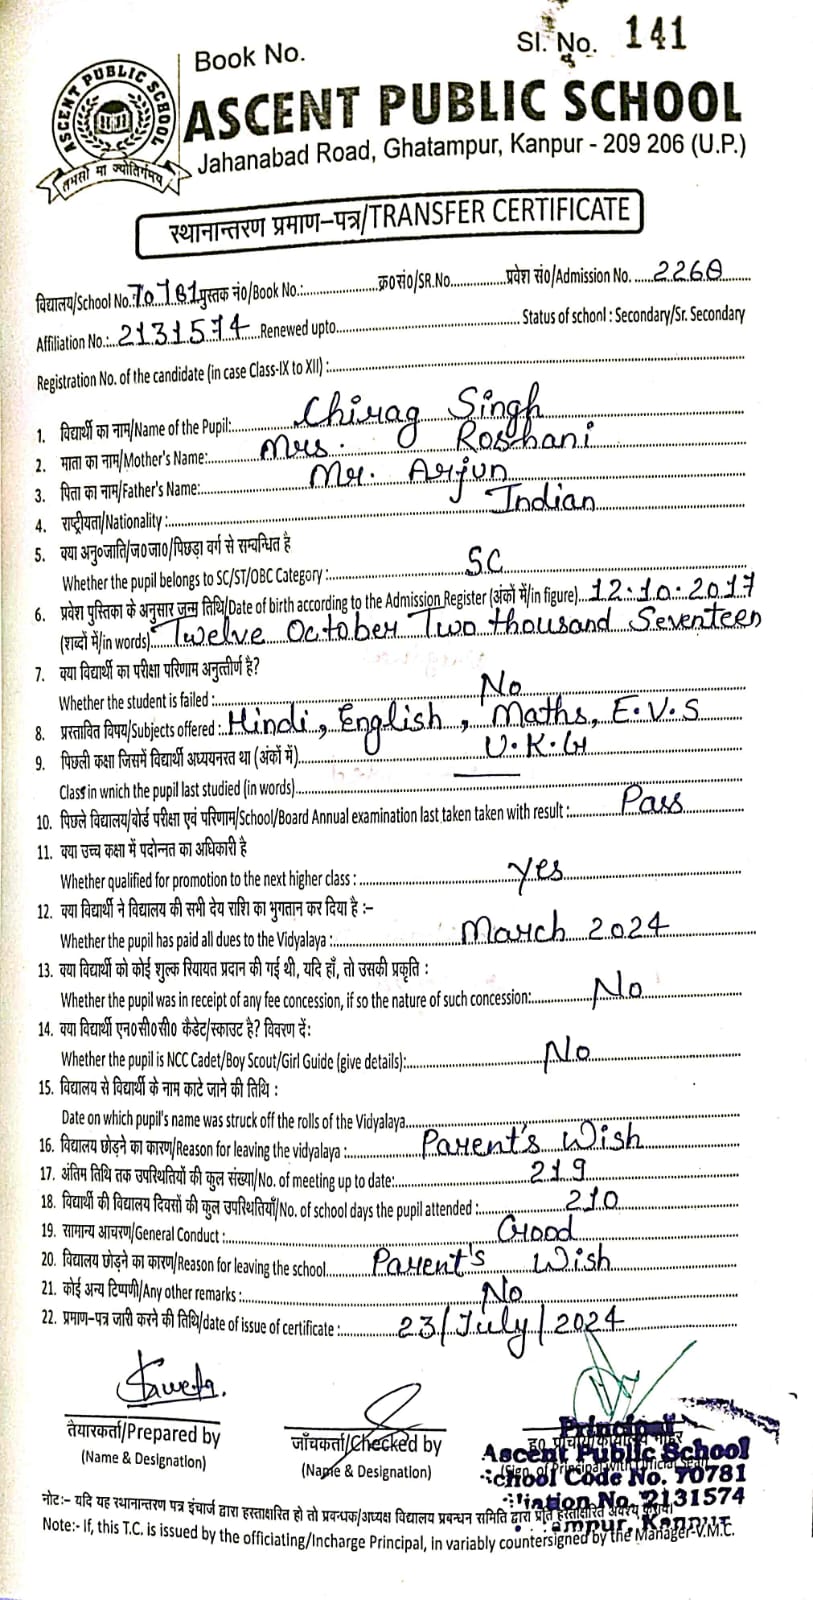 Book No.
Sl. No. 141
ASCENT PUBLIC SCHOOL
तमसो मा ज्योतिर्गमय
ASCENT PUBLIC SCHOOL
Jahanabad Road, Ghatampur, Kanpur - 209 206 (U.P.)
स्थानान्तरण प्रमाण-पत्र/TRANSFER CERTIFICATE
विद्यालय/School No.: 70781 पुस्तक नं०/Book No.:.......... क्र०सं०/SR.No.......... प्रवेश सं०/Admission No. ..... 2260
Affiliation No.:.. 2131574 .. Renewed upto.......... Status of school : Secondary/Sr. Secondary
Registration No. of the candidate (in case Class-IX to XII) :..........
1. विद्यार्थी का नाम/Name of the Pupil:.......... Chirag Singh
2. माता का नाम/Mother's Name:.......... Mrs. Roshani
3. पिता का नाम/Father's Name:.......... Mr. Arjun
4. राष्ट्रीयता/Nationality :.......... Indian
5. क्या अनु०जाति/ज०जा०/पिछड़ा वर्ग से सम्बन्धित है
Whether the pupil belongs to SC/ST/OBC Category :.......... SC
6. प्रवेश पुस्तिका के अनुसार जन्म तिथि/Date of birth according to the Admission Register (अंकों में/in figure).... 12.10.2017
(शब्दों में/in words).... Twelve October Two thousand Seventeen
7. क्या विद्यार्थी का परीक्षा परिणाम अनुत्तीर्ण है?
Whether the student is failed :.......... No
8. प्रस्तावित विषय/Subjects offered : Hindi, English, Maths, E.V.S
9. पिछली कक्षा जिसमें विद्यार्थी अध्ययनरत था (अंकों में).......... U.K.G
Class in wnich the pupil last studied (in words)..........
10. पिछले विद्यालय/बोर्ड परीक्षा एवं परिणाम/School/Board Annual examination last taken taken with result :.......... Pass
11. क्या उच्च कक्षा में पदोन्नत का अधिकारी है
Whether qualified for promotion to the next higher class :.......... Yes
12. क्या विद्यार्थी ने विद्यालय की सभी देय राशि का भुगतान कर दिया है :-
Whether the pupil has paid all dues to the Vidyalaya :.......... March 2024
13. क्या विद्यार्थी को कोई शुल्क रियायत प्रदान की गई थी, यदि हाँ, तो उसकी प्रकृति :
Whether the pupil was in receipt of any fee concession, if so the nature of such concession:.......... No
14. क्या विद्यार्थी एन०सी०सी० कैडेट/स्काउट है? विवरण दें:
Whether the pupil is NCC Cadet/Boy Scout/Girl Guide (give details):.......... No
15. विद्यालय से विद्यार्थी के नाम काटे जाने की तिथि :
Date on which pupil's name was struck off the rolls of the Vidyalaya..........
16. विद्यालय छोड़ने का कारण/Reason for leaving the vidyalaya :.......... Parent's Wish
17. अंतिम तिथि तक उपस्थितियों की कुल संख्या/No. of meeting up to date:.......... 219
18. विद्यार्थी की विद्यालय दिवसों की कुल उपस्थितियाँ/No. of school days the pupil attended :.......... 210
19. सामान्य आचरण/General Conduct :.......... Good
20. विद्यालय छोड़ने का कारण/Reason for leaving the school.......... Parent's Wish
21. कोई अन्य टिप्पणी/Any other remarks :.......... No
22. प्रमाण-पत्र जारी करने की तिथि/date of issue of certificate :.......... 23/July/2024
तैयारकर्ता/Prepared by
(Name & Designation)
जाँचकर्ता/Checked by
(Name & Designation)
Principal
Ascent Public School
School Code No. 70781
No. 2131574
Kanpur
नोट:- यदि यह स्थानान्तरण पत्र इंचार्ज द्वारा हस्ताक्षरित हो तो प्रबन्धक/अध्यक्ष विद्यालय प्रबन्धन समिति द्वारा प्रति हस्ताक्षरित अवश्य करायें।
Note:- If, this T.C. is issued by the officiating/Incharge Principal, in variably countersigned by the Manager-V.M.C.